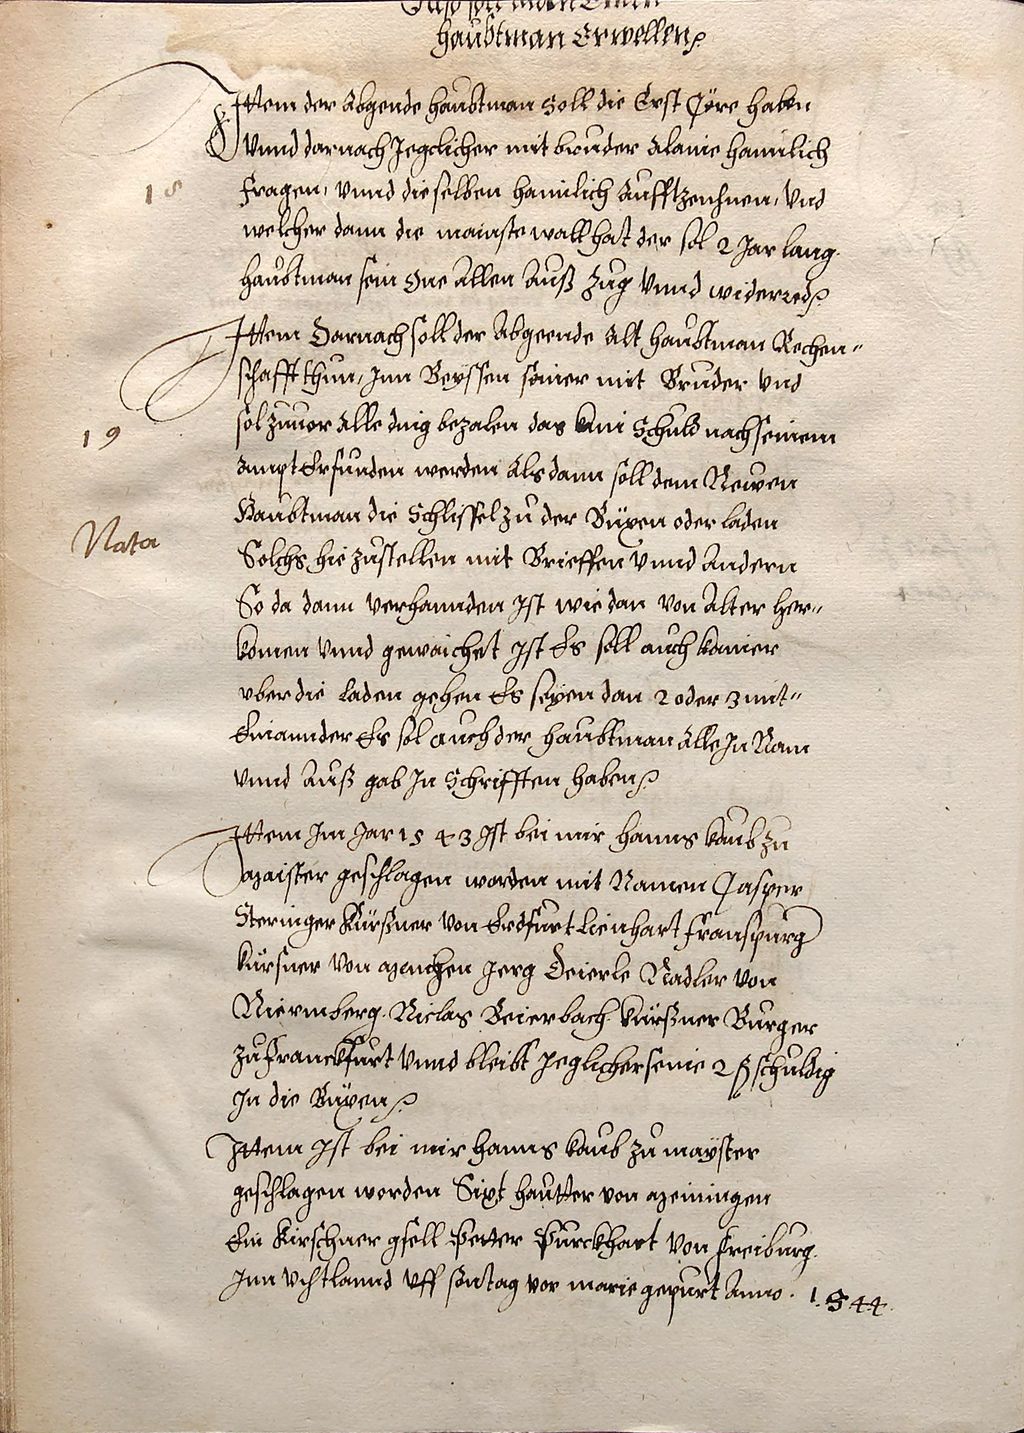 Also soll man Einen
haubtman Erwellen
Ittem der Abgende haubtman Soll die Erst Cöre haben
Vnnd darnach Jegclicher mit bruder Alaine haimlich
18
fragen, Vnnd dieselben haimlich Aufftzenhnen, Vnd
welcher dann die mainste wall hat der sol 2 Jar lang
haubtman sein One Allen Auß Zug Vnnd widerred
Ittem Darnach soll der Abgeende Alt haubtman Rechen-
schafft thun, Jnn Beyssen seiner mit Bruder Vnd
sol zuuor Alle ding bezalen das kain Schuld nach seinem
19
Ampt Erfunden werden Als dann soll dem Newen
Haubtman die Schlissel zu der Büxen oder laden
Nata
Solchs hie zustellen mit Brieffen Vnnd Andern
So da dann Verhannden Jst wie dan von Alter her-
komen Vnnd geweichet Jst Es soll auch kainer
vber die laden gehen Es seyen dan 2 oder 3 mit-
Einannder Es sol auch der haubtman Alle Jn Nam
vnnd Auß gab Jn Schrifften haben
Ittem Jm Jar 1543 Jst bei mir hanns kaub zu
Maister geschlagen worden mit Namen Casper
Steringer Kürßner von Erdfurt Lienhart franspurg
kürsner Von Menchen Jerg Deierle Nadler von
Niermberg. Niclas Beierbach kürßner Burger
zu franckfurt Vnnd bleibt Jeglicher seine 2 ß schuldig
Jn die Büxen
Ittem Jst bei mir hanns kaub zu mayster
geschlagen worden Sixt hautter von Meiningen
Ein Kirschner gsell Petter Purckhart Von freiburg
Jnn Vchtlannd Vff sontag vor marie gepurt Anno . 1544